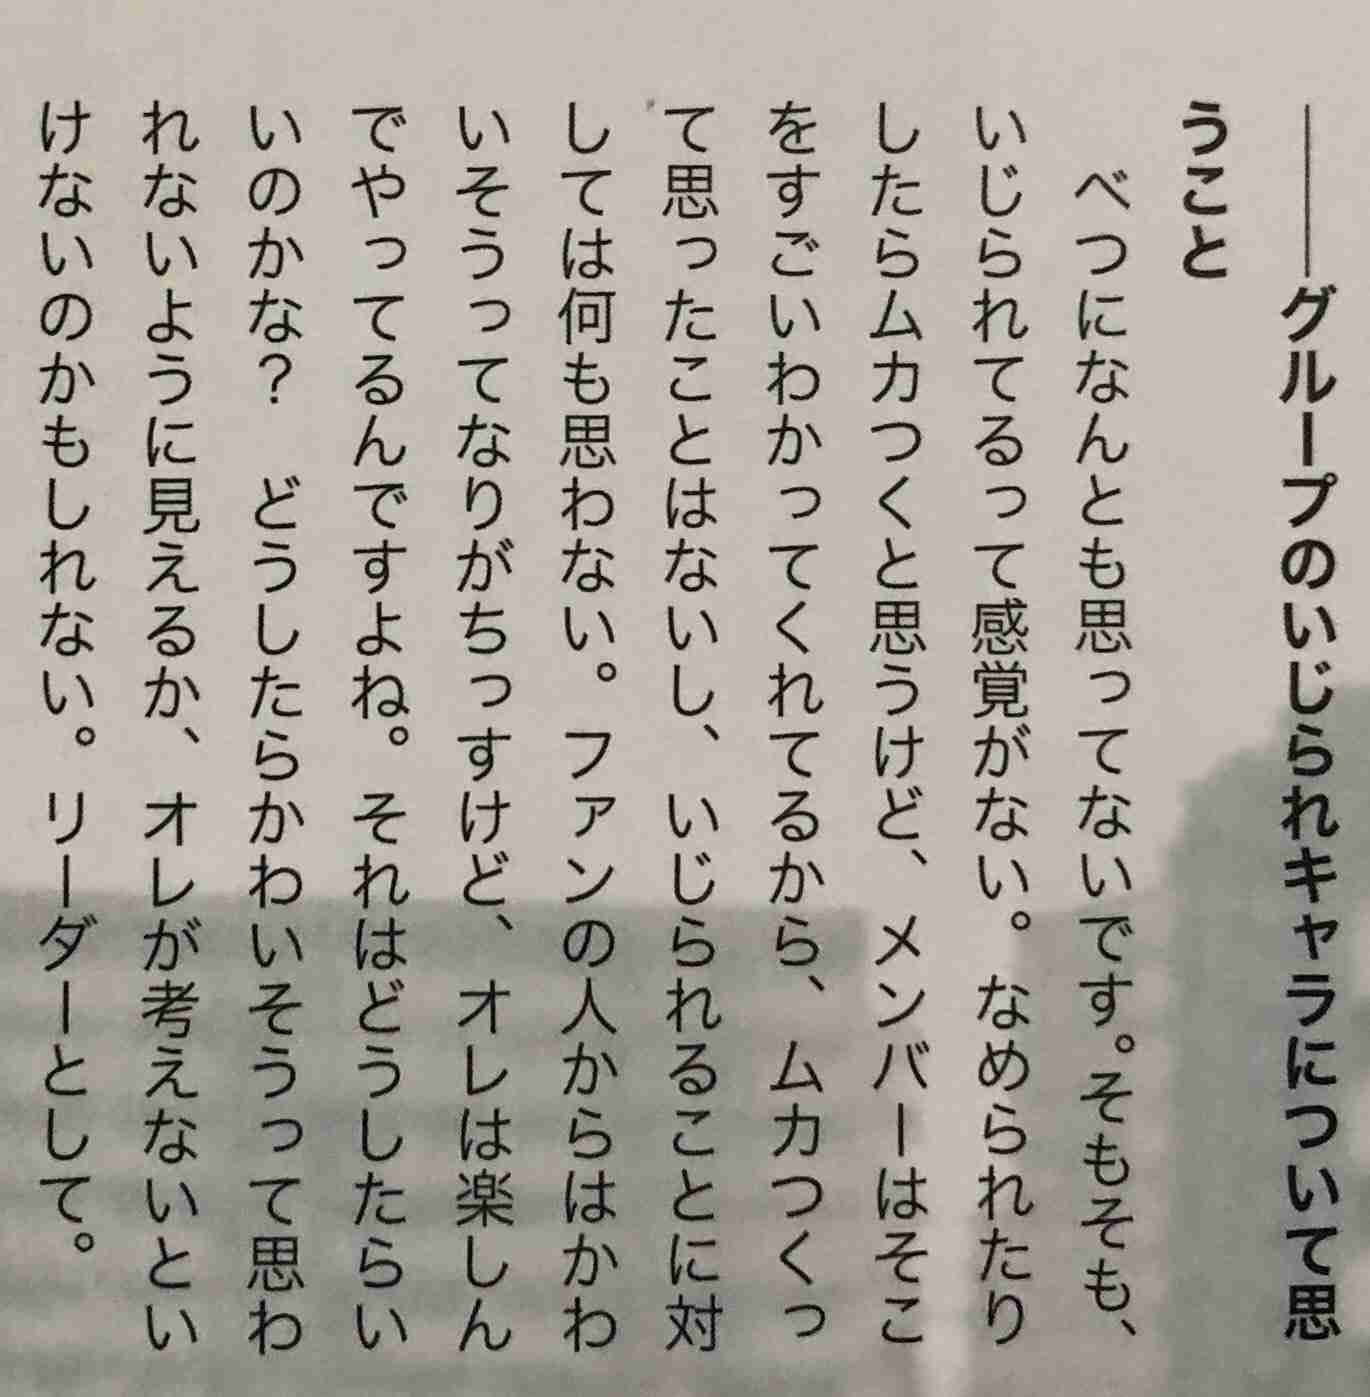 ――グループのいじられキャラについて思
うこと
べつになんとも思ってないです。そもそも、
いじられてるって感覚がない。なめられたり
したらムカつくと思うけど、メンバーはそこ
をすごいわかってくれてるから、ムカつくっ
て思ったことはないし、いじられることに対
しては何も思わない。ファンの人からはかわ
いそうってなりがちっすけど、オレは楽しん
でやってるんですよね。それはどうしたらい
いのかな？　どうしたらかわいそうって思わ
れないように見えるか、オレが考えないとい
けないのかもしれない。リーダーとして。